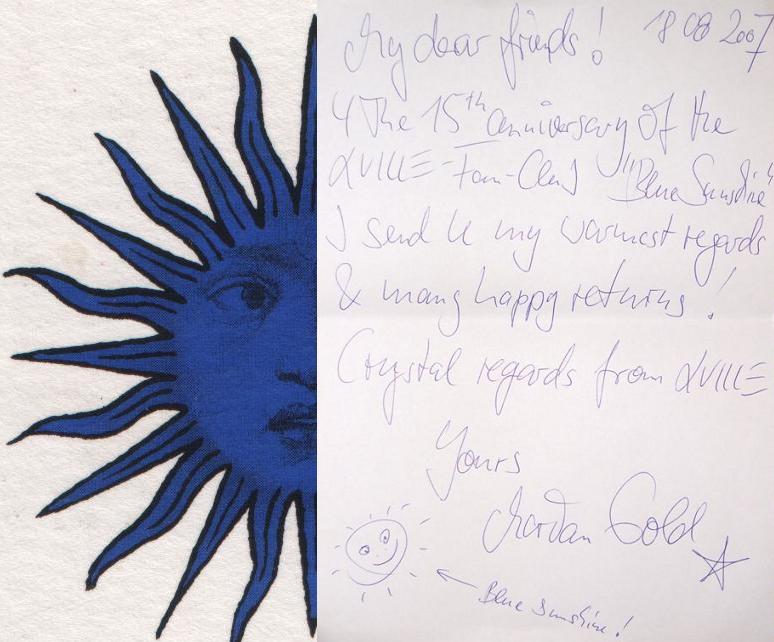 My dear friends! 18 08 2007
4 The 15th anniversary of the
αVILLE-Fan-Club "Blue Sunshine"
I send U my warmest regards
& many happy returns!
Crystal regards from αVILLE
Yours
Marian Gold
Blue Sunshine!